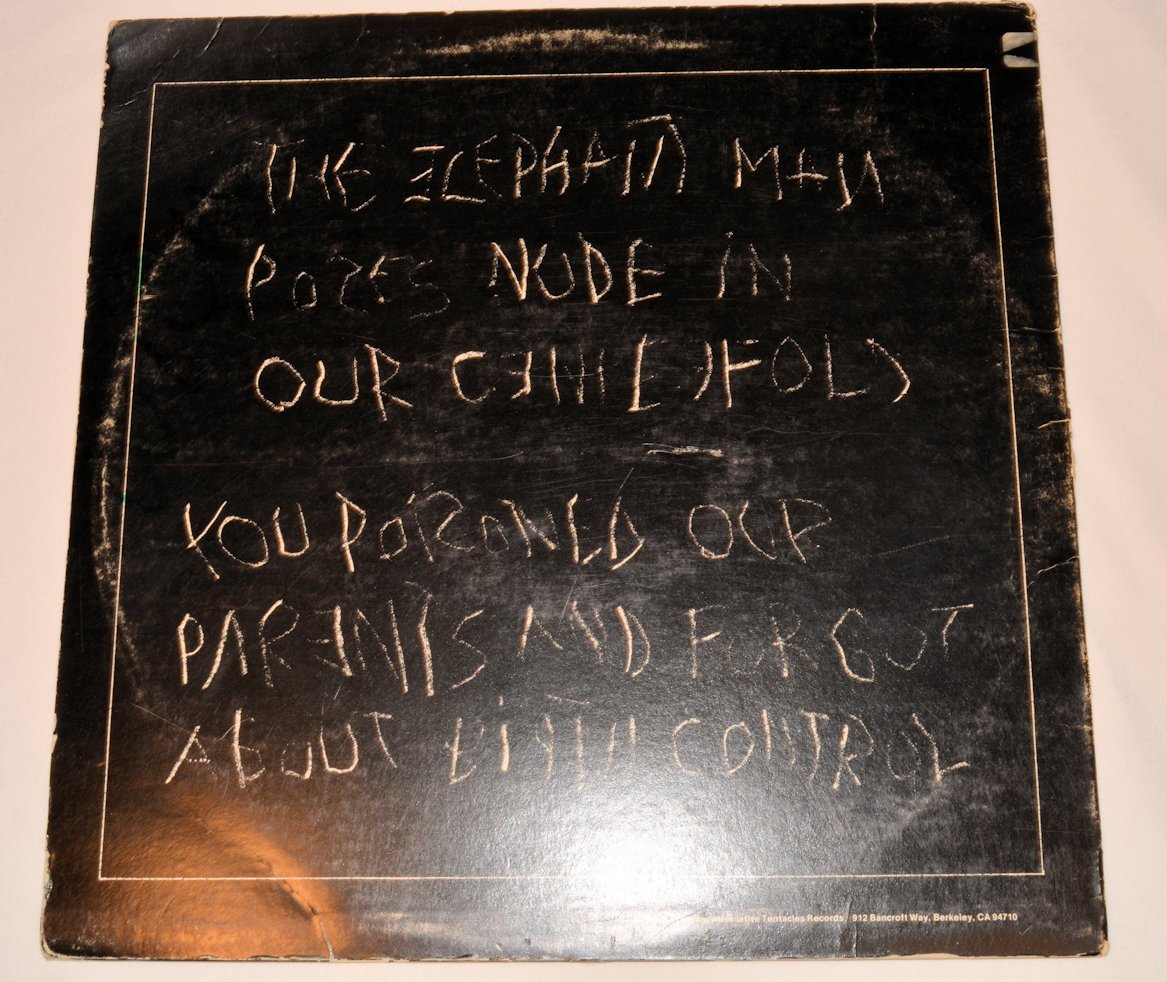 THE ELEPHANT MAN
POSES NUDE IN
OUR CENTERFOLD
YOU POISONED OUR
PARENTS AND FORGOT
ABOUT BIRTH CONTROL
Alternative Tentacles Records 912 Bancroft Way, Berkeley, CA 94710